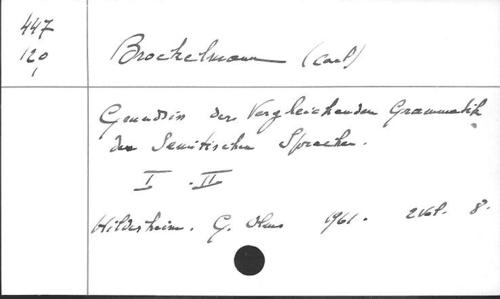 447
120
1
Brockelmann (Carl)
Grundriss der Vergleichenden Grammatik
der Semitischen Sprachen.
I . II
Hildesheim. G. Olms 1961. 2 Vol. 8.